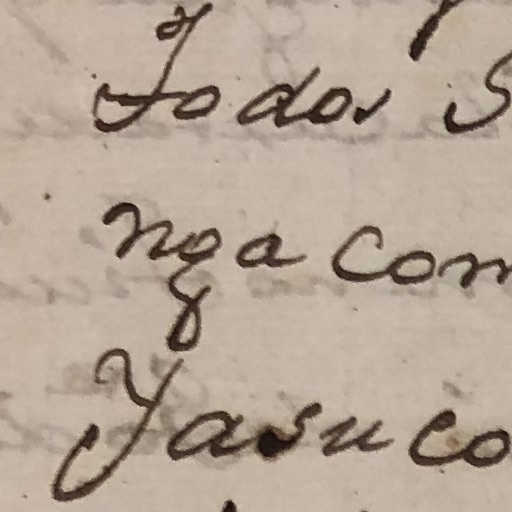 Todos S
nga com
Yasuco